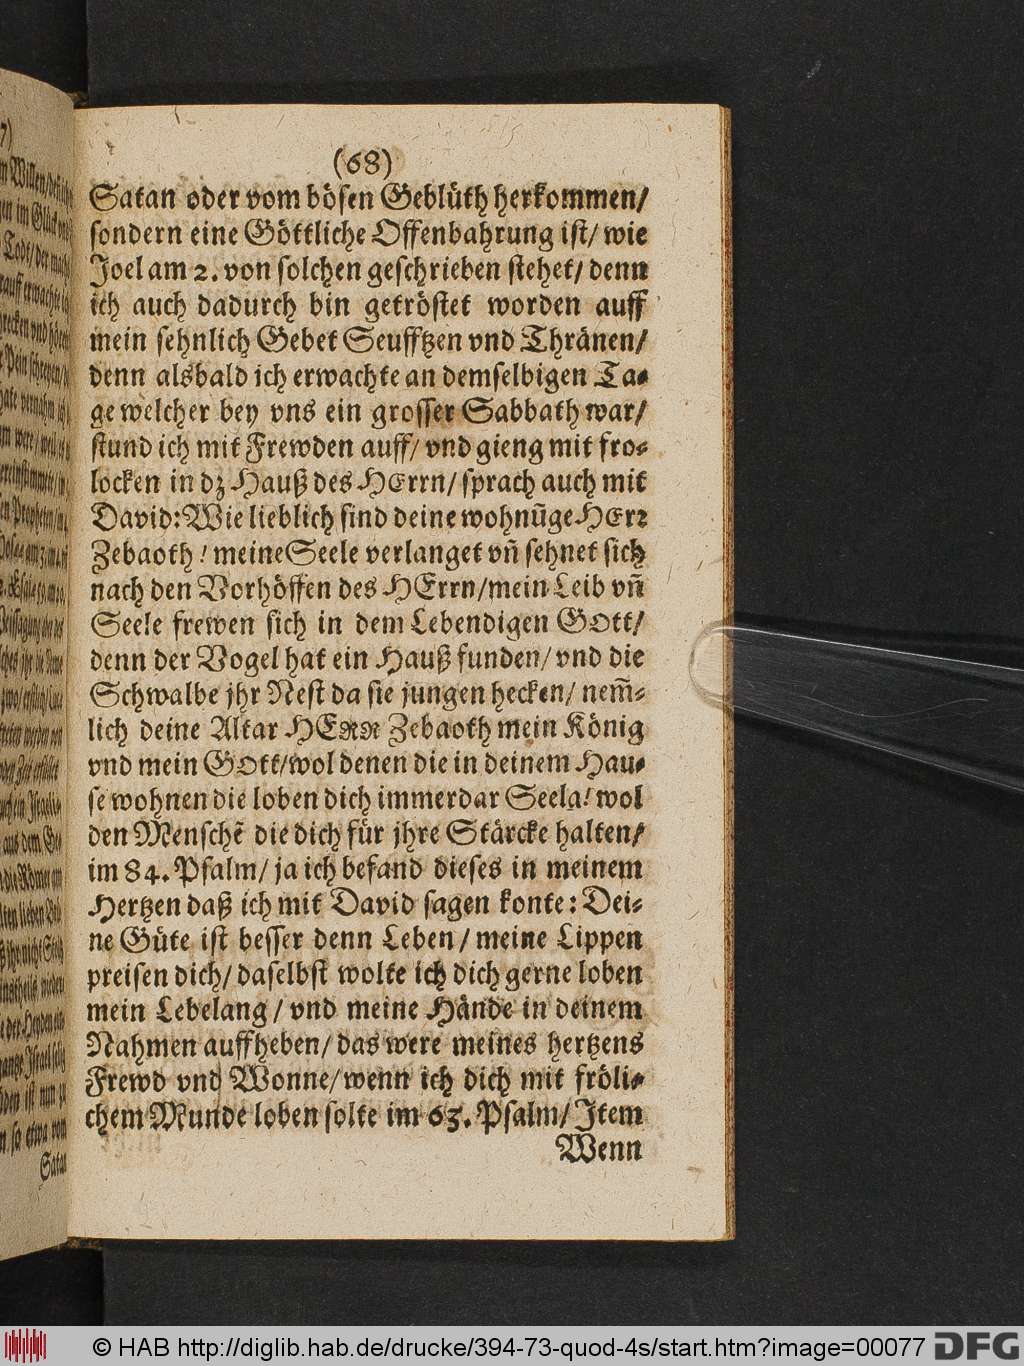 (68)
Satan oder vom bösen Geblüth herkommen/
sondern eine Göttliche Offenbahrung ist/ wie
Joel am 2. von solchen geschrieben stehet/ denn
ich auch dadurch bin getröstet worden auff
mein sehnlich Gebet Seufftzen vnd Thränen/
denn alsbald ich erwachte an demselbigen Ta-
ge welcher bey vns ein grosser Sabbath war/
stund ich mit Frewden auff/ vnd gieng mit fro-
locken in dz Hauß des HErrn/ sprach auch mit
David: Wie lieblich sind deine wohnūge HErr
Zebaoth! meine Seele verlanget vn̄ sehnet sich
nach den Vorhöffen des HErrn/ mein Leib vn̄
Seele frewen sich in dem Lebendigen GOtt/
denn der Vogel hat ein Hauß funden/ vnd die
Schwalbe jhr Nest da sie jungen hecken/ nem̄-
lich deine Altar HERR Zebaoth mein König
vnd mein GOtt/ wol denen die in deinem Hau-
se wohnen die loben dich immerdar Seela! wol
den Menschē die dich für jhre Stärcke halten/
im 84. Psalm/ ja ich befand dieses in meinem
Hertzen daß ich mit David sagen konte: Dei-
ne Güte ist besser denn Leben/ meine Lippen
preisen dich/ daselbst wolte ich dich gerne loben
mein Lebelang/ vnd meine Hände in deinem
Nahmen auffheben/ das were meines hertzens
Frewd vnd Wonne/ wenn ich dich mit fröli-
chem Munde loben solte im 63. Psalm/ Item
Wenn
© HAB http://diglib.hab.de/drucke/394-73-quod-4s/start.htm?image=00077
DFG